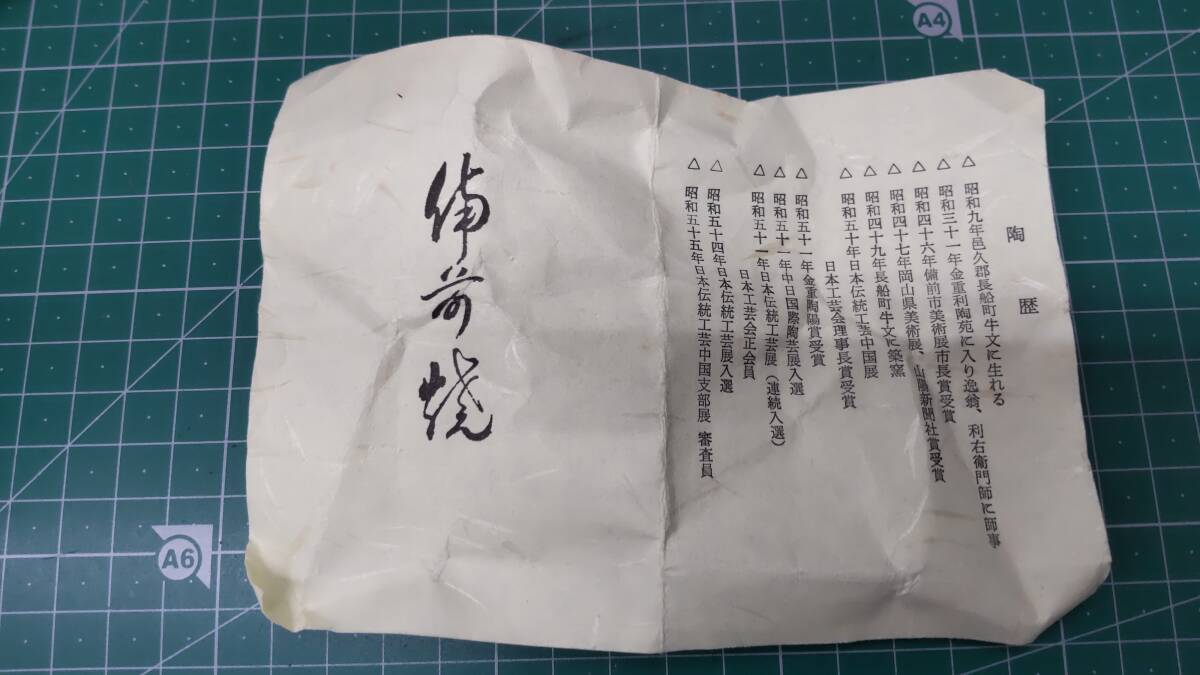 陶歴
△ 昭和九年邑久郡長船町牛文に生れる
△ 昭和三十一年金重利陶苑に入り逸翁、利右衛門師に師事
△ 昭和四十六年備前市美術展市長賞受賞
△ 昭和四十七年岡山県美術展、山陽新聞社賞受賞
△ 昭和四十九年長船町牛文に築窯
△ 昭和五十年日本伝統工芸中国展
日本工芸会理事長賞受賞
△ 昭和五十一年金重陶陽賞受賞
△ 昭和五十一年中日国際陶芸展入選
△ 昭和五十一年日本伝統工芸展(連続入選)
日本工芸会正会員
△ 昭和五十四年日本伝統工芸展入選
△ 昭和五十五年日本伝統工芸中国支部展 審査員
備前焼
A4
A6